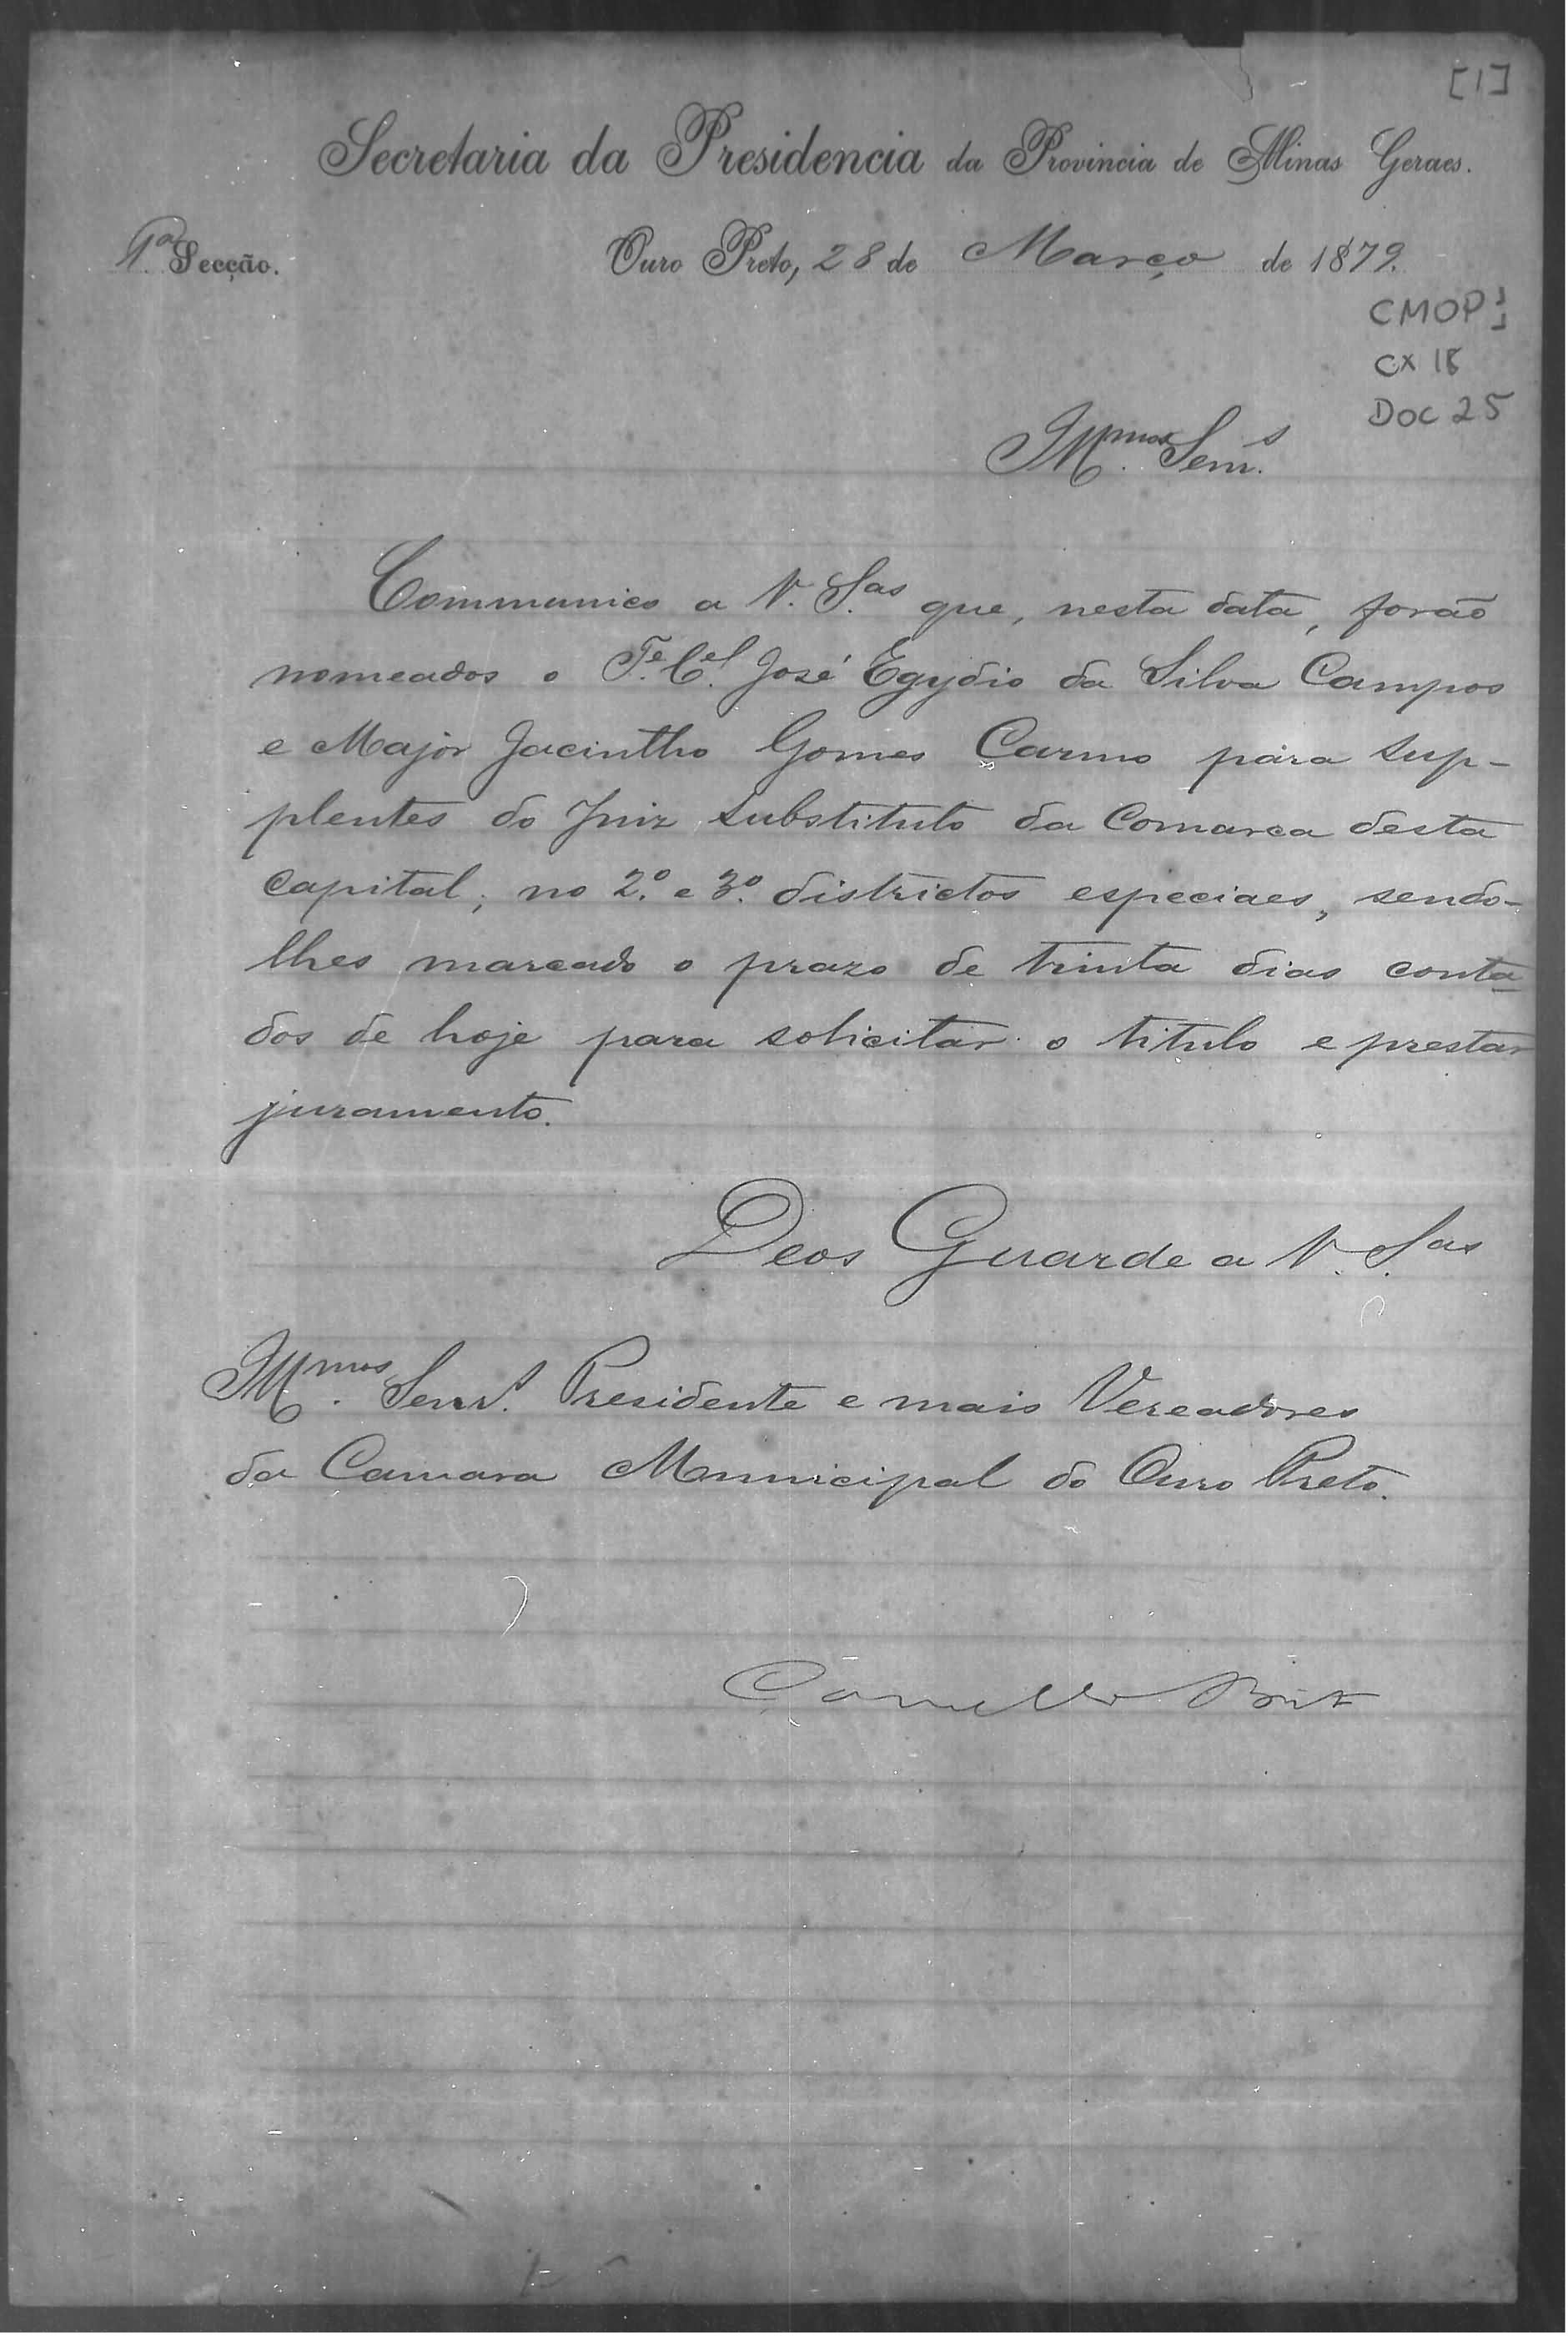 [1]
Secretaria da Presidencia da Provincia de Minas Geraes.
1ª Secção.
Ouro Preto, 28 de Março de 1879.
CMOP
CX 18
DOC 25
Illmos. Senrs.
Communico a V. Sas. que, nesta data, forão
nomeados o Te. Cel. José Egydio da Silva Campos
e Major Jacintho Gomes Carmo para sup-
plentes do Juiz substituto da Comarca desta
Capital, no 2.º e 3.º districtos especiaes, sendo-
lhes marcado o prazo de trinta dias conta
dos de hoje para solicitar o titulo e prestar
juramento.
Deos Guarde a V. Sas
Illmos. Senrs. Presidente e mais Vereadores
da Camara Municipal do Ouro Preto.